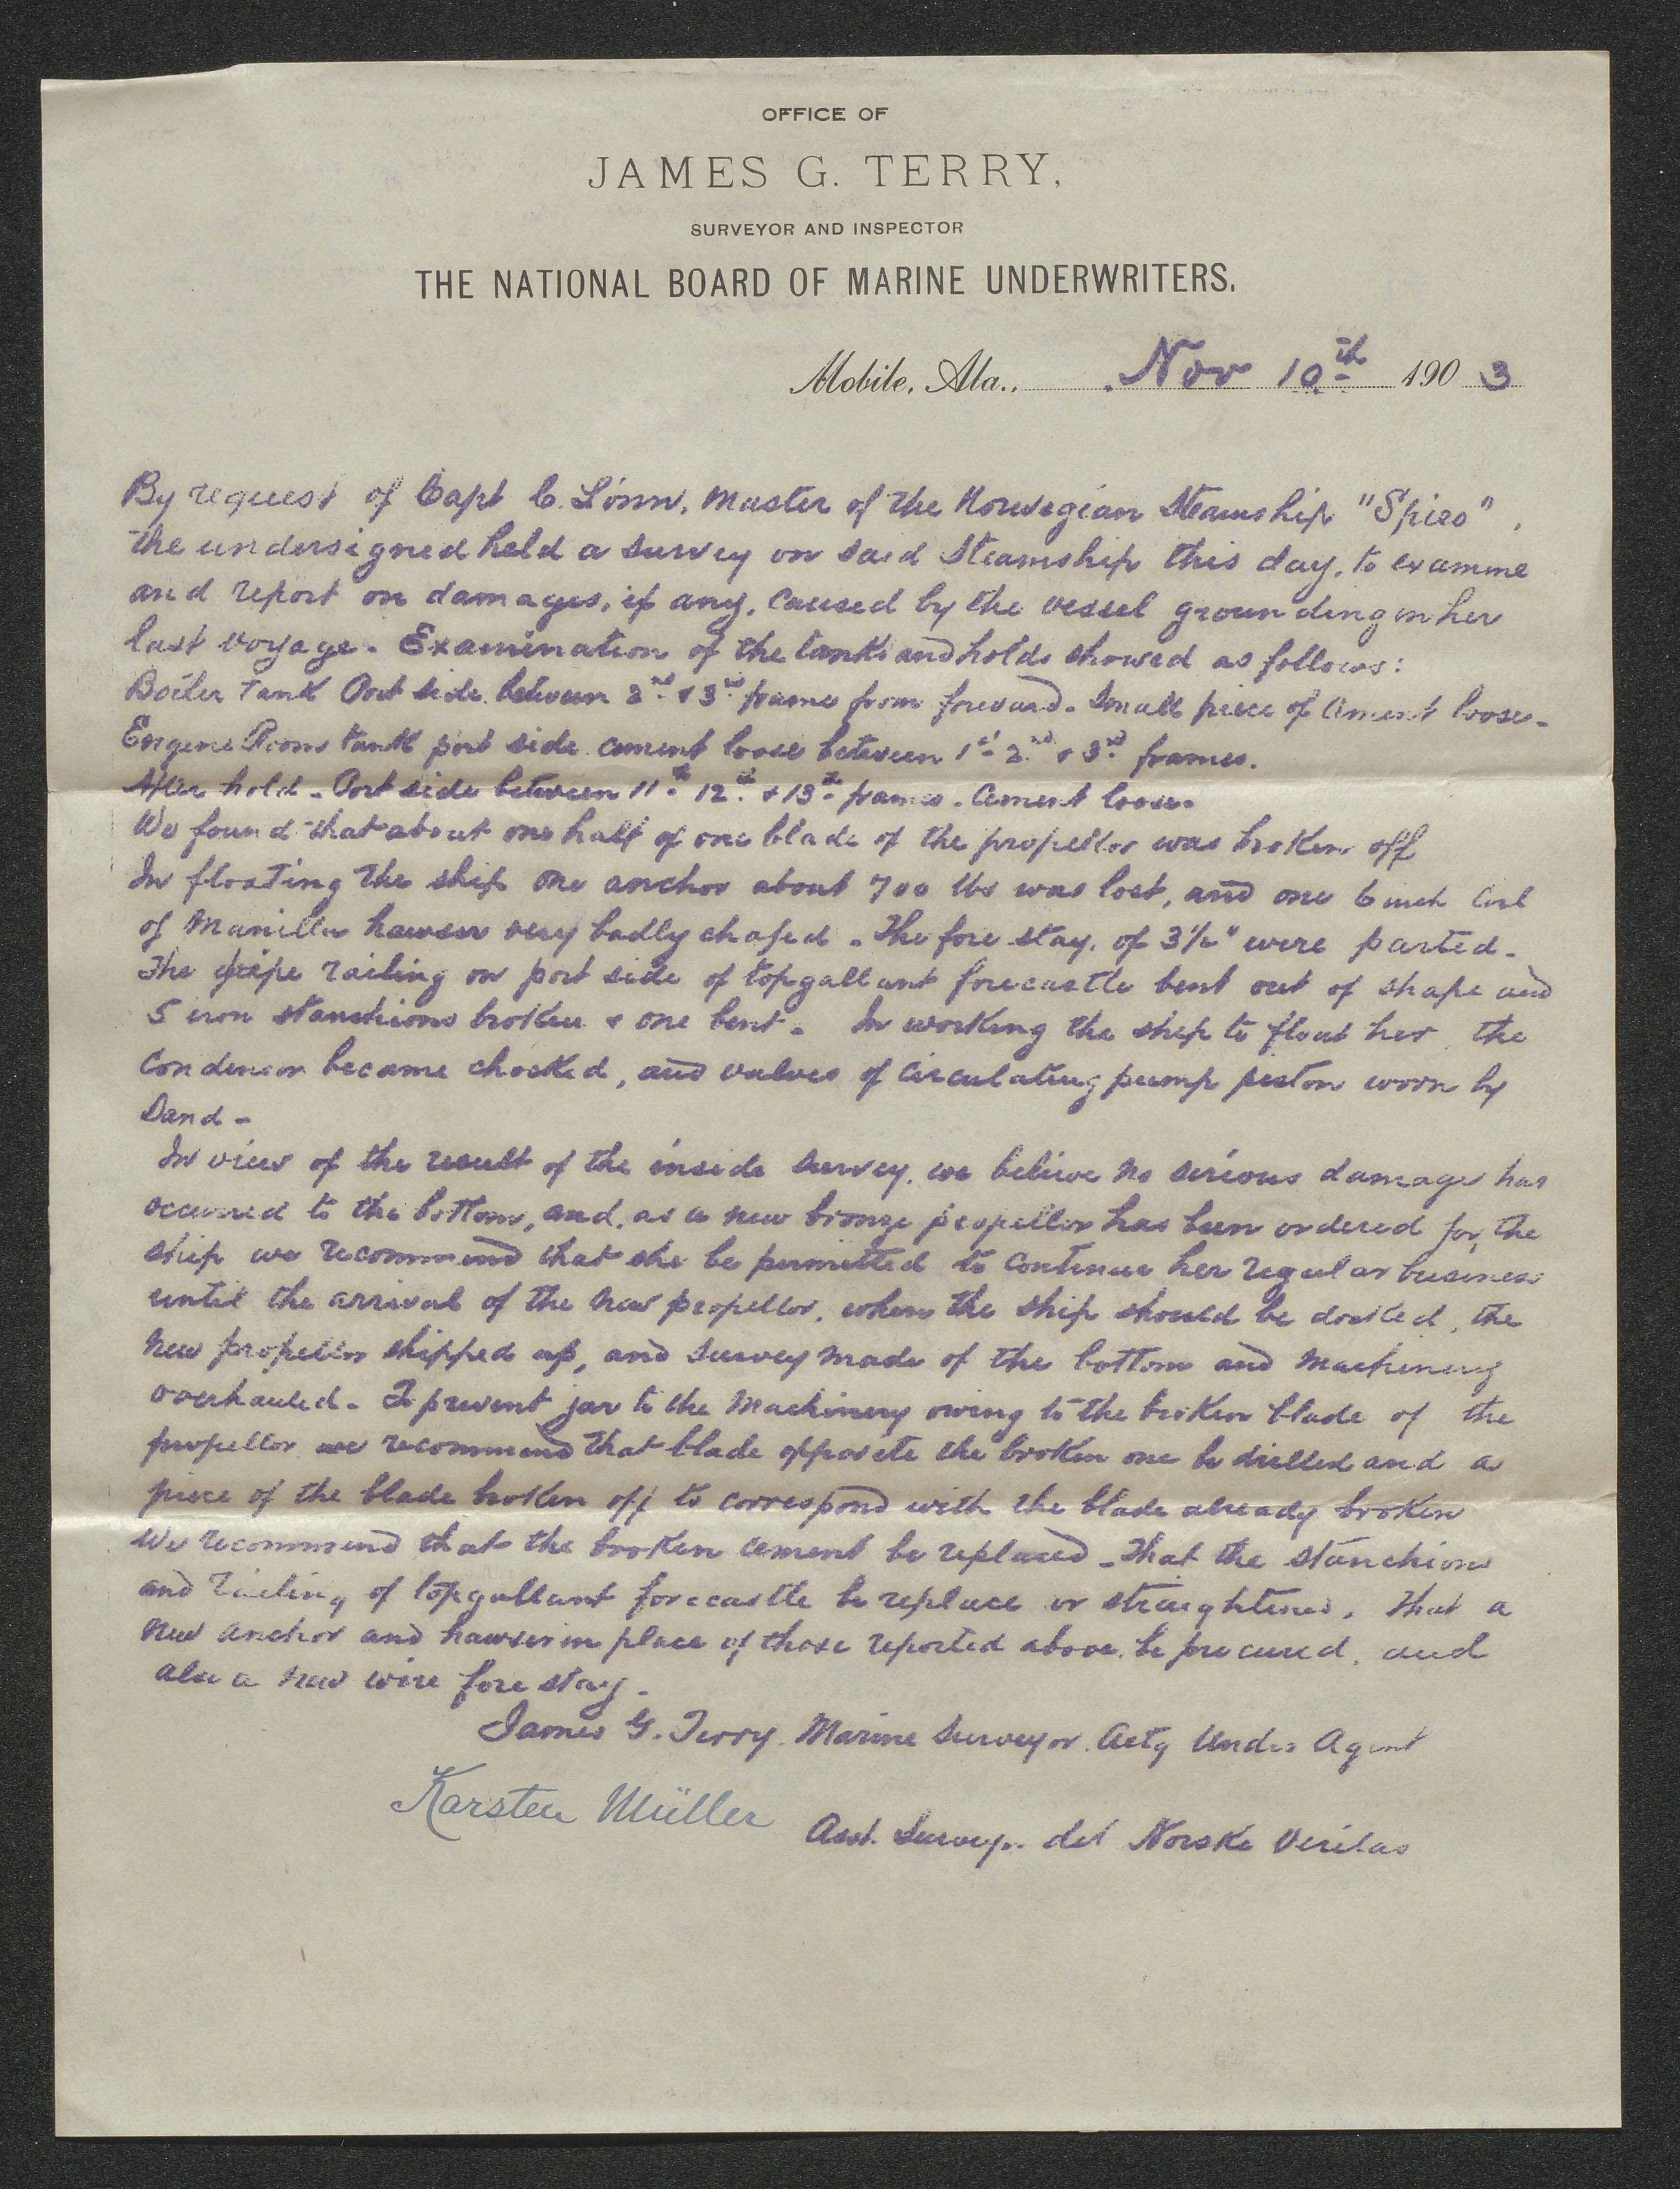 OFFICE OF
JAMES G. TERRY,
SURVEYOR AND INSPECTOR
THE NATIONAL BOARD OF MARINE UNDERWRITERS.
Mobile, Ala., Nov 10th 1903
By request of Capt C. Lönn, Master of the Norwegian Steamship "Spero",
the undersigned held a survey on said Steamship this day, to examine
and report on damages, if any, caused by the vessel grounding on her
last voyage. Examination of the tanks and holds showed as follows:
Boiler Tank Port side between 2nd & 3rd frames from forward. Small piece of Cement loose.
Engine Room tank port side cement loose between 1st 2nd & 3rd frames.
After hold - Port side between 11th 12th & 13th frames. Cement loose.
We found that about one half of one blade of the propellor was broken off
In floating the ship one anchor about 700 lbs was lost, and one 6 inch Coil
of Manilla hawser very badly chafed. The fore stay, of 3½" were parted.
The pipe railing on port side of topgallant forecastle bent out of shape and
5 iron stanchions broken & one bent. In working the ship to float her the
Condensor became choked, and valves of Circulating pump piston worn by
Sand -
In view of the result of the inside survey, we believe no serious damage has
occurred to the bottom, and, as a new bronze propellor has been ordered for the
ship we recommend that she be permitted to continue her regular business
until the arrival of the new propellor, when the ship should be docked, the
new propellor shipped up, and survey made of the bottom and machinery
overhauled. To prevent jar to the Machinery owing to the broken blade of the
propellor we recommend that blade opposite the broken one be drilled and a
piece of the blade broken off to correspond with the blade already broken
We recommend that the broken cement be replaced - that the stanchions
and railing of topgallant forecastle be replace or straightened. That a
new anchor and hawser in place of those reported above, be procured, and
also a new wire fore stay.
James G. Terry. Marine Surveyor. Actg Under Agent
Karsten Müller
Asst. Surveyr. det Norske Veritas